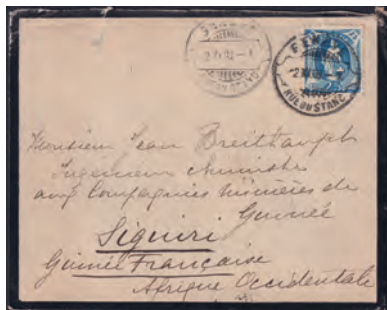 GENÈVE
2.XI.09.–1
GENÈVE
2.XI.09.–1
RUE DU STAND
Monsieur Jean Breithaupt
Ingénieur chimiste
aux Compagnies Minières de
Guinée
Siguiri
Guinée Française
Afrique Occidentale